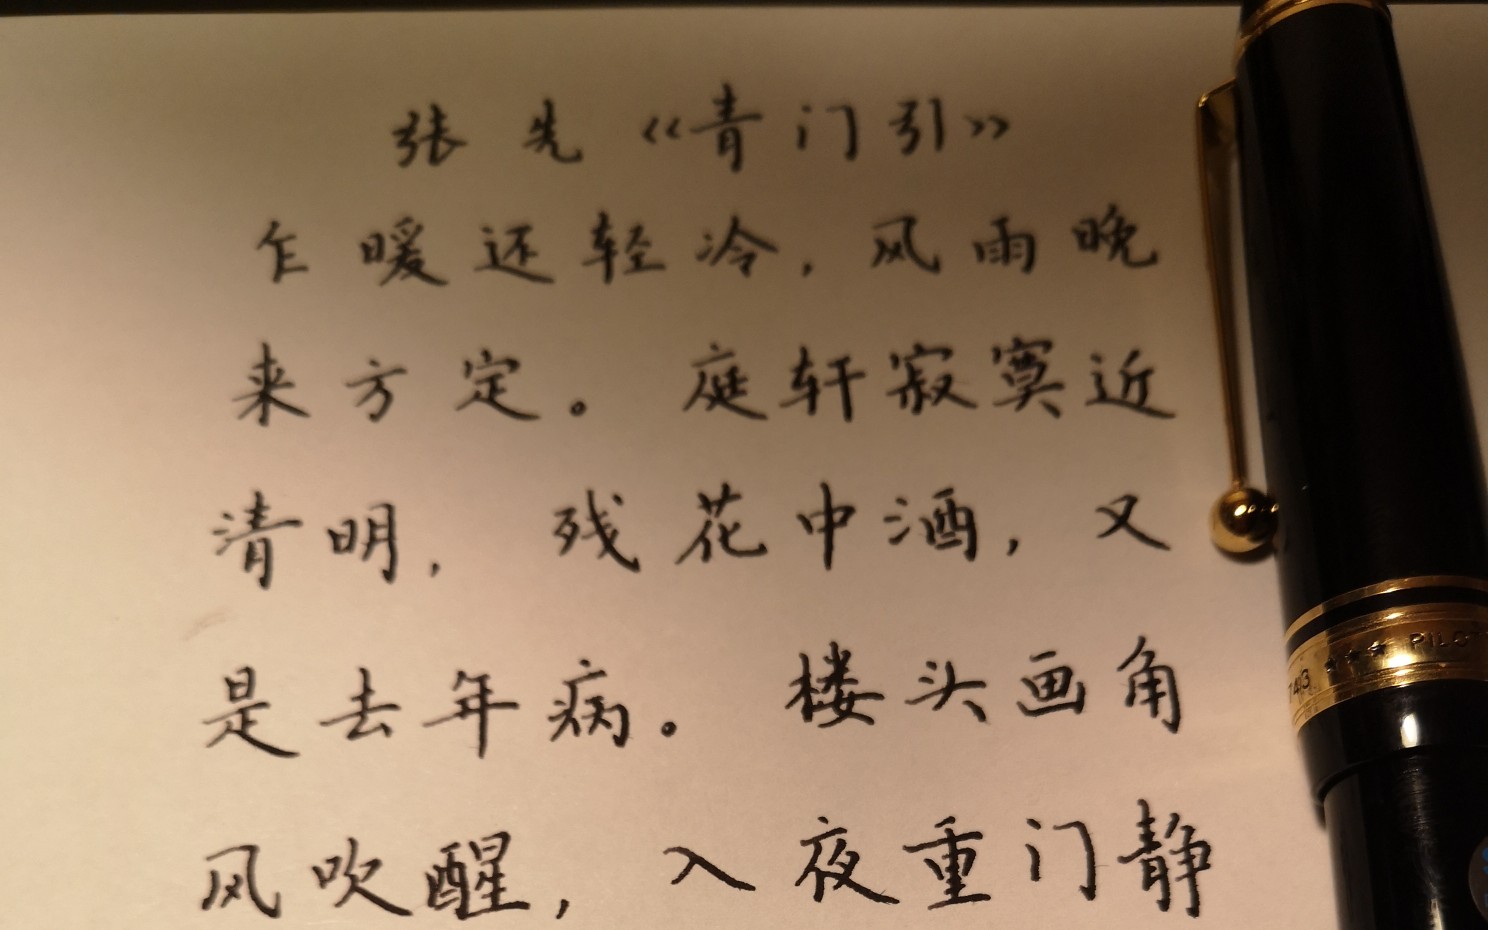 张先《青门引》
乍暖还轻冷，风雨晚
来方定。庭轩寂寞近
清明，残花中酒，又
是去年病。楼头画角
风吹醒，入夜重门静
743 *** PILOT